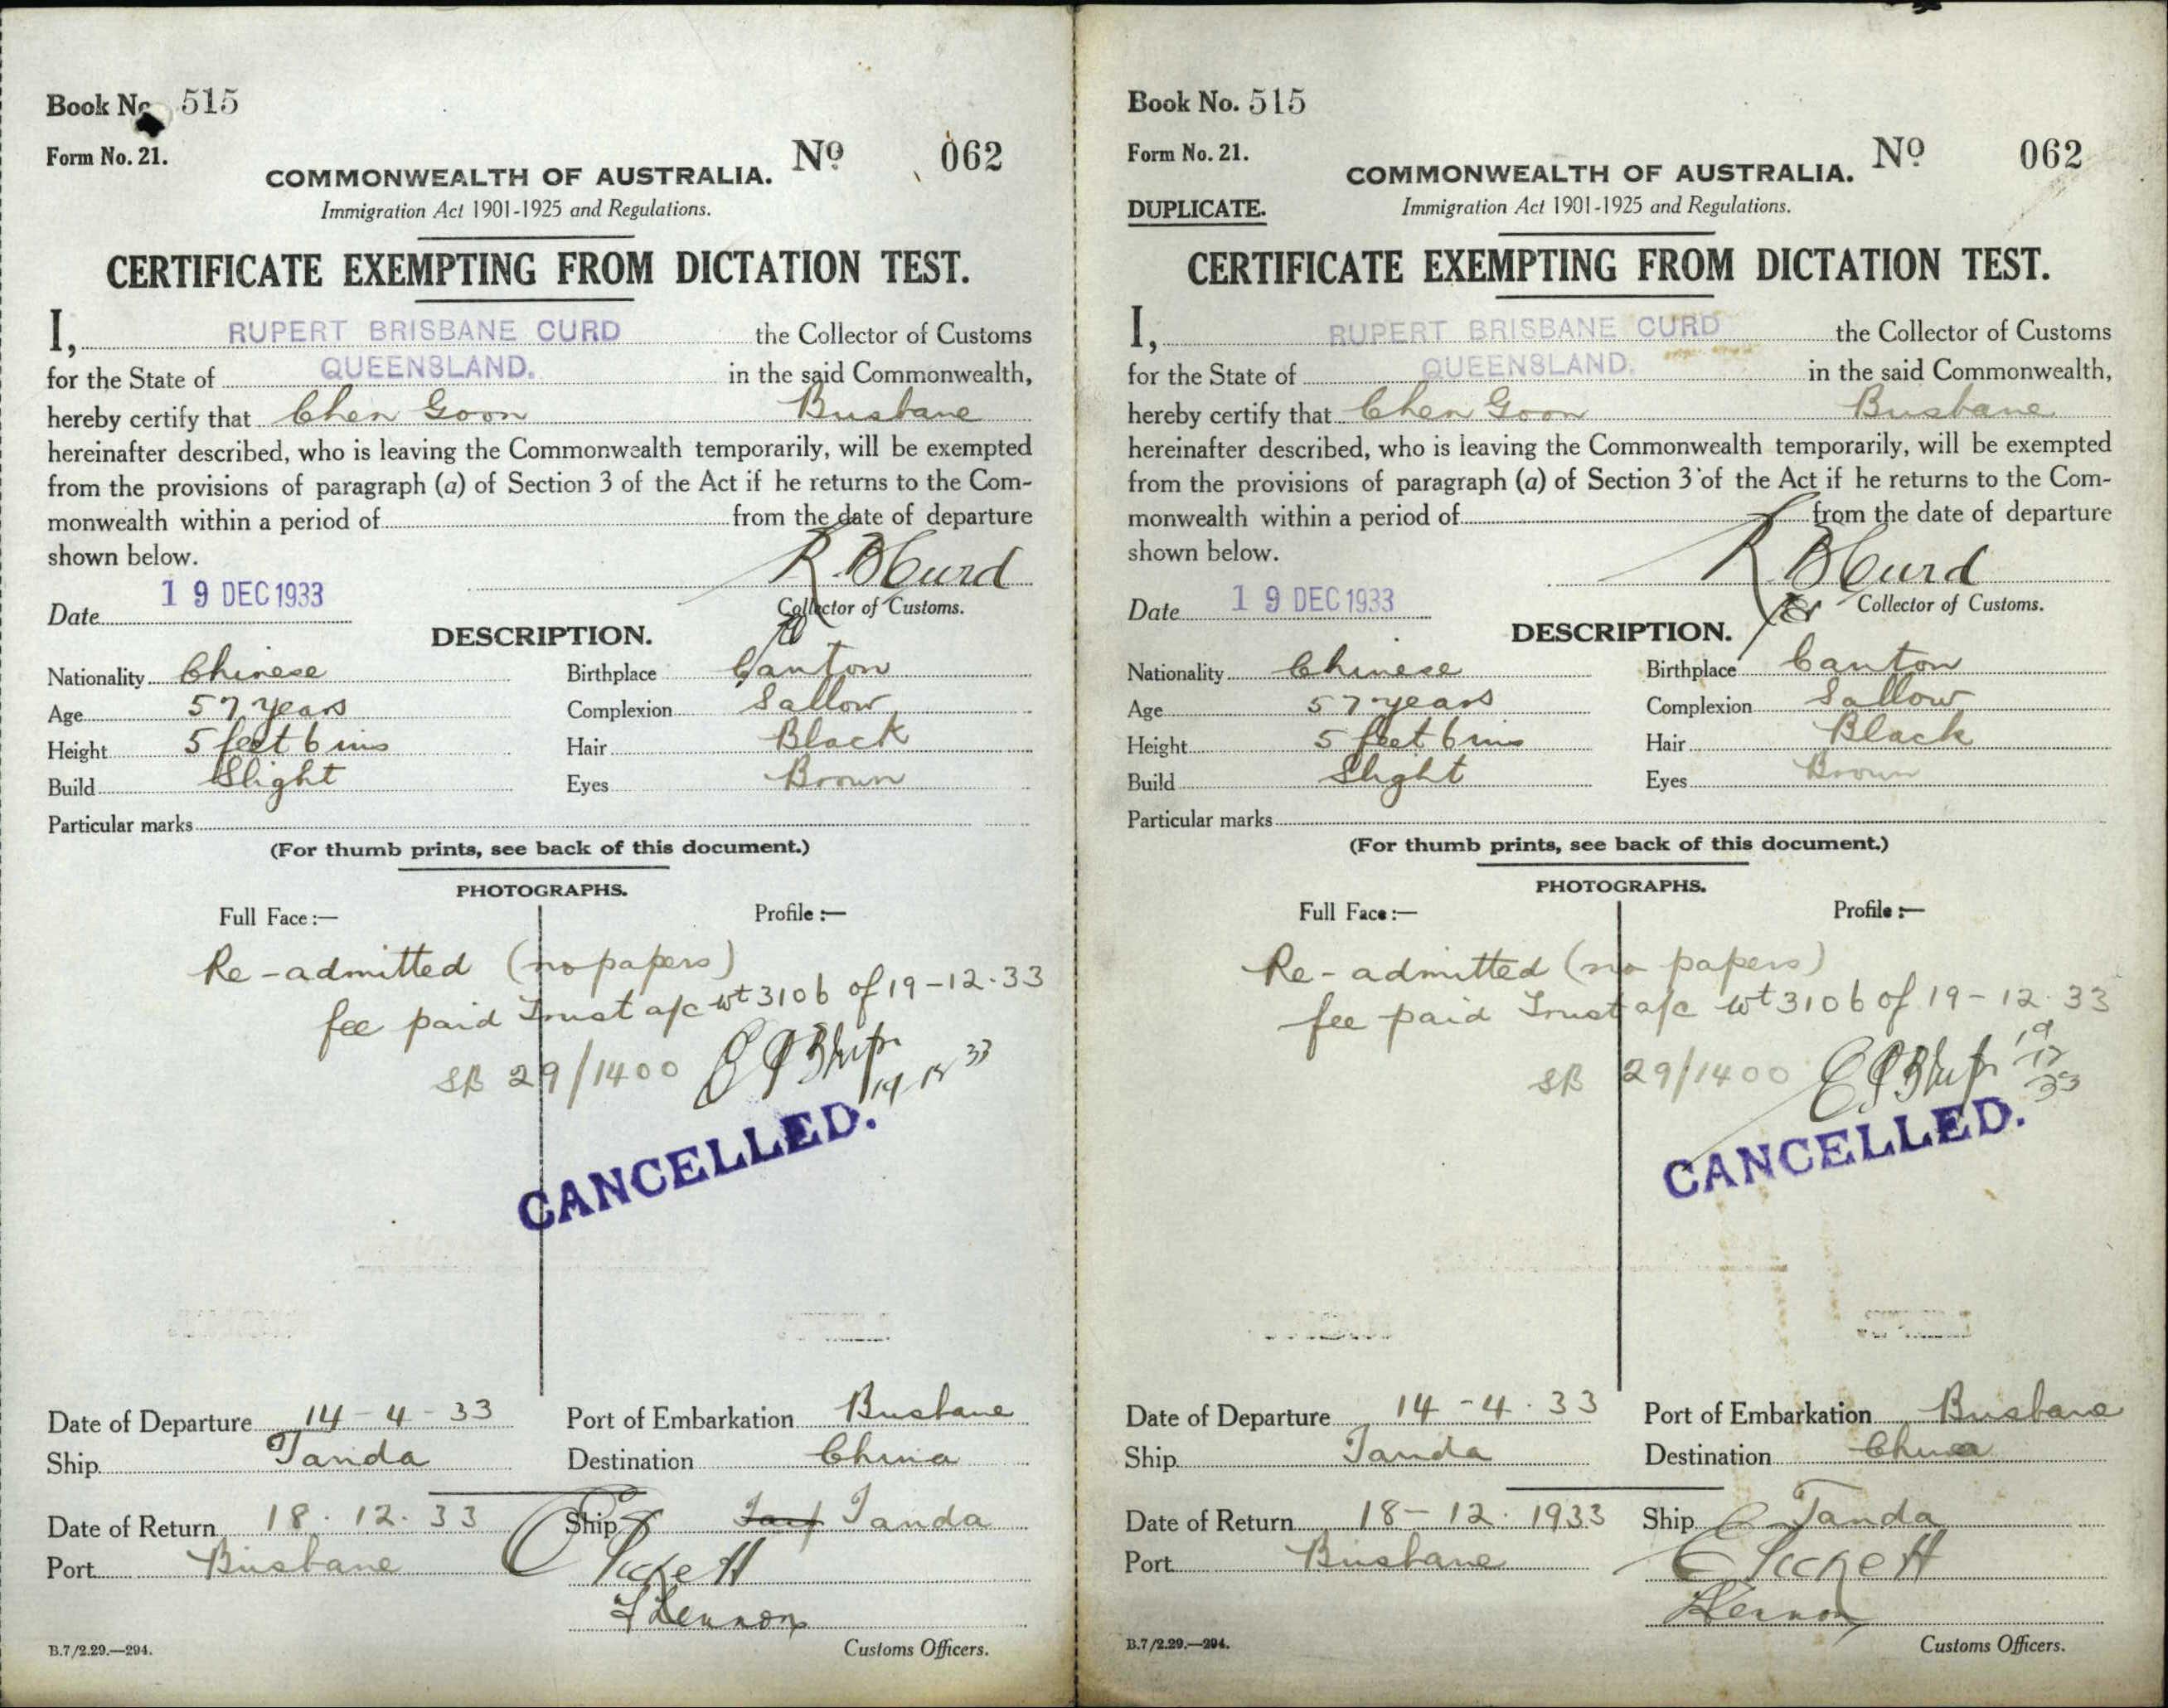 Book No. 515
Form No. 21.
Nº 062
COMMONWEALTH OF AUSTRALIA.
Immigration Act 1901-1925 and Regulations.
CERTIFICATE EXEMPTING FROM DICTATION TEST.
I, RUPERT BRISBANE CURD the Collector of Customs
for the State of QUEENSLAND. in the said Commonwealth,
hereby certify that Chen Goon Brisbane
hereinafter described, who is leaving the Commonwealth temporarily, will be exempted
from the provisions of paragraph (a) of Section 3 of the Act if he returns to the Com-
monwealth within a period of from the date of departure
shown below.
R B Curd
Date 19 DEC 1933
Collector of Customs.
DESCRIPTION.
Nationality Chinese Birthplace Canton
Age 57 years Complexion Sallow
Height 5 feet 6 ins Hair Black
Build Slight Eyes Brown
Particular marks
(For thumb prints, see back of this document.)
PHOTOGRAPHS.
Full Face:— Profile:—
Re-admitted (no papers)
fee paid Trust a/c wt 3106 of 19-12-33
SB 29/1400
19 12 33
CANCELLED.
Date of Departure 14-4-33 Port of Embarkation Brisbane
Ship Tanda Destination China
Date of Return 18.12.33 Ship Tanda
Port Brisbane
B.7/2.29.—294. Customs Officers.
Book No. 515
Form No. 21.
Nº 062
COMMONWEALTH OF AUSTRALIA.
DUPLICATE.
Immigration Act 1901-1925 and Regulations.
CERTIFICATE EXEMPTING FROM DICTATION TEST.
I, RUPERT BRISBANE CURD the Collector of Customs
for the State of QUEENSLAND. in the said Commonwealth,
hereby certify that Chen Goon Brisbane
hereinafter described, who is leaving the Commonwealth temporarily, will be exempted
from the provisions of paragraph (a) of Section 3 of the Act if he returns to the Com-
monwealth within a period of from the date of departure
shown below.
R B Curd
Date 19 DEC 1933
for Collector of Customs.
DESCRIPTION.
Nationality Chinese Birthplace Canton
Age 57 years Complexion Sallow
Height 5 feet 6 ins Hair Black
Build Slight Eyes Brown
Particular marks
(For thumb prints, see back of this document.)
PHOTOGRAPHS.
Full Face:— Profile:—
Re-admitted (no papers)
fee paid Trust a/c wt 3106 of 19-12-33
SB 29/1400
19
12
33
CANCELLED.
Date of Departure 14-4-33 Port of Embarkation Brisbane
Ship Tanda Destination China
Date of Return 18-12-1933 Ship Tanda
Port Brisbane
B.7/2.29.—294. Customs Officers.